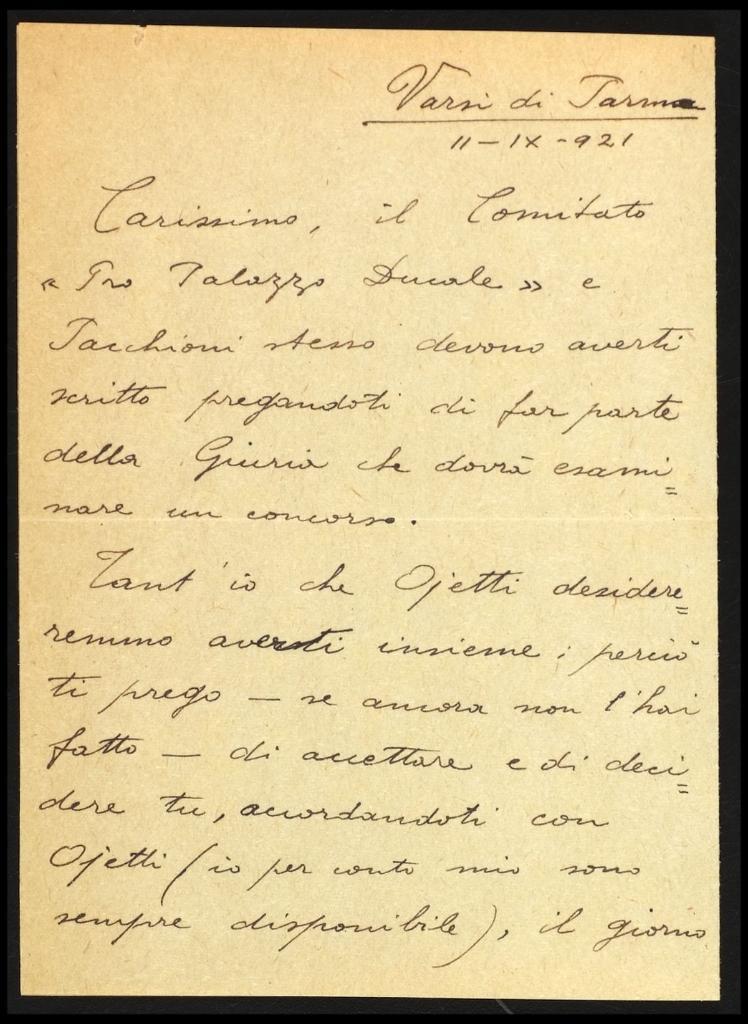 Varsi di Parma
11-IX-921
Carissimo, il Comitato
« Pro Palazzo Ducale » e
Pacchioni stesso devono averti
scritto pregandoti di far parte
della Giuria che dovrà esami=
nare un concorso.
Tant'io che Ojetti desidere=
remmo averti insieme; perciò
ti prego — se ancora non l'hai
fatto — di accettare e di deci=
dere tu, accordandoti con
Ojetti (io per conto mio sono
sempre disponibile), il giorno